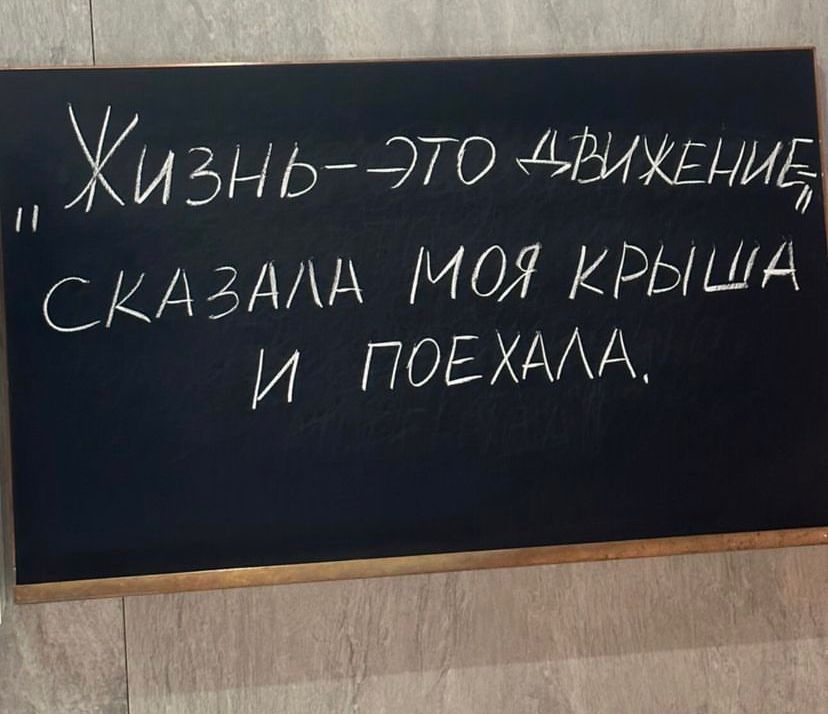 „Жизнь - это движение,"
сказала моя крыша
и поехала.